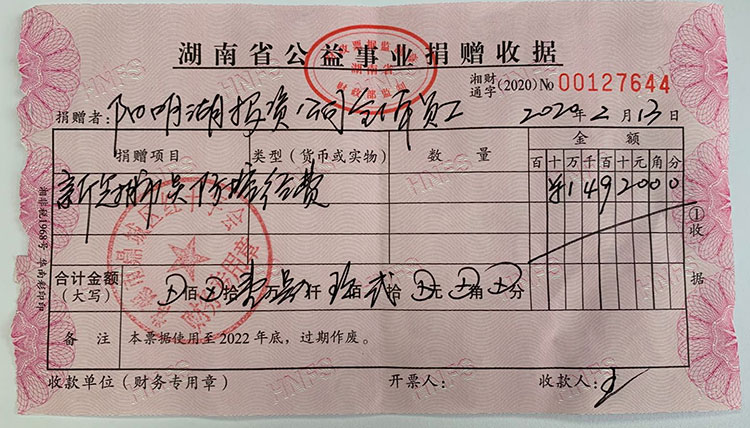 湖南省公益事业捐赠收据
湖南省
湘财通字(2020)No 00127644
捐赠者：阳明湖投资公司全体员工 2020年2月13日
捐赠项目 类型（货币或实物） 数量 金额
百十万千百十元角分
新冠肺炎防控经费 ¥1492000
合计金额（大写） 佰 拾壹万肆仟玖佰贰拾 元 角 分
备注 本票据使用至2022年底，过期作废。
收款单位（财务专用章） 开票人： 收款人：
①收据
湘非税1968号
HNFS